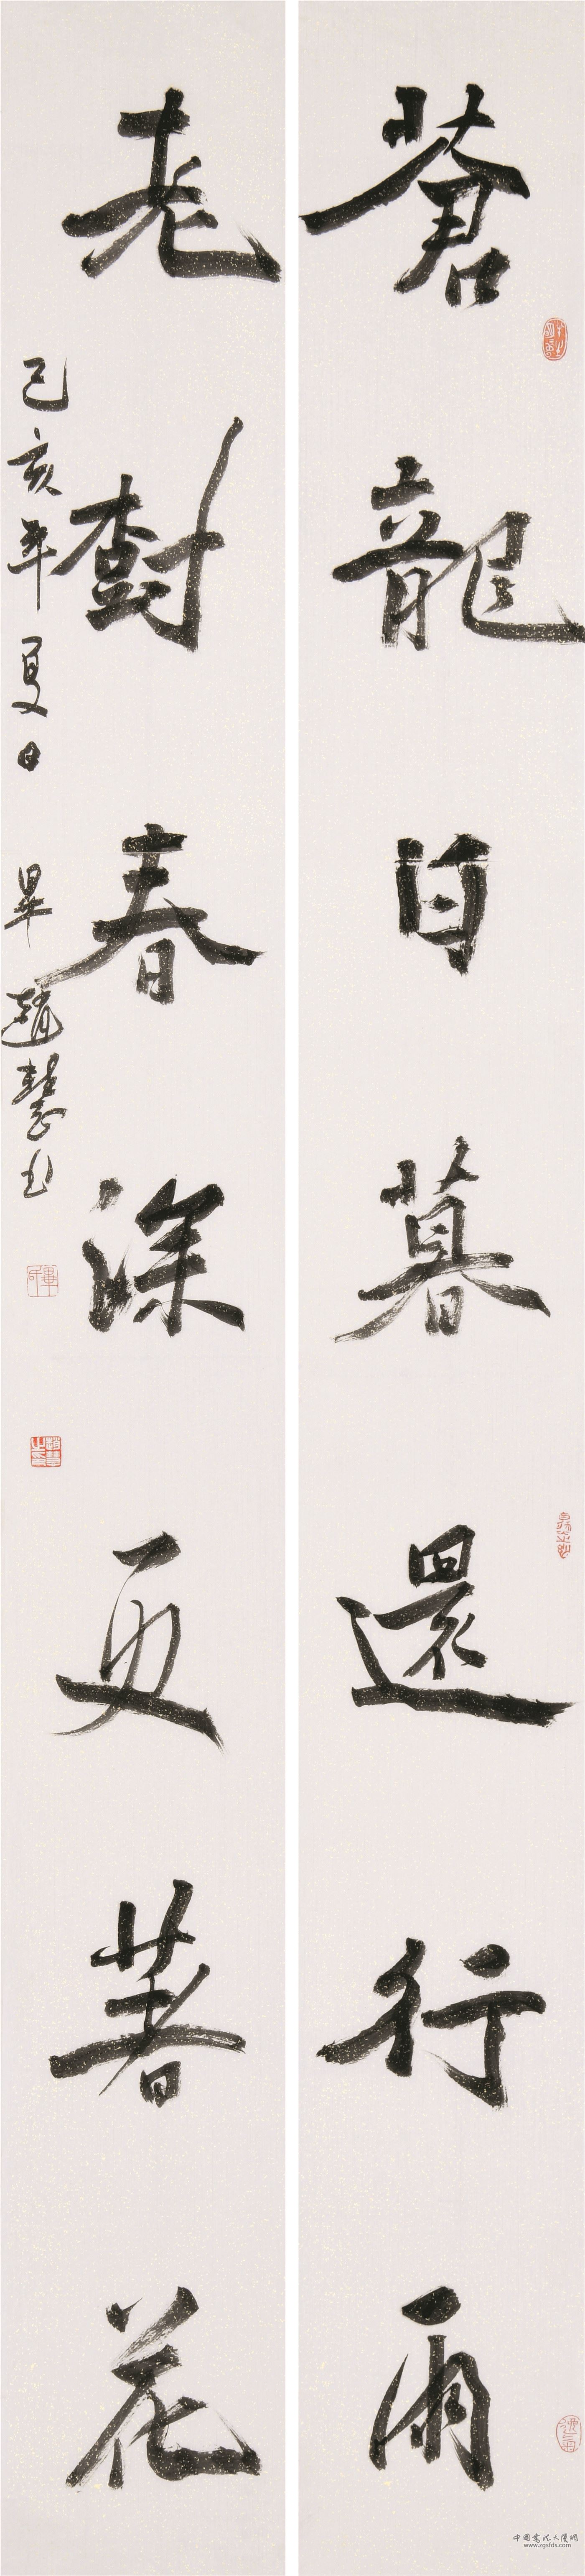 蒼龍日暮還行雨
老樹春深更著花
己亥年夏日 畢趙慧
中國書法大廈網
www.zgsfds.com